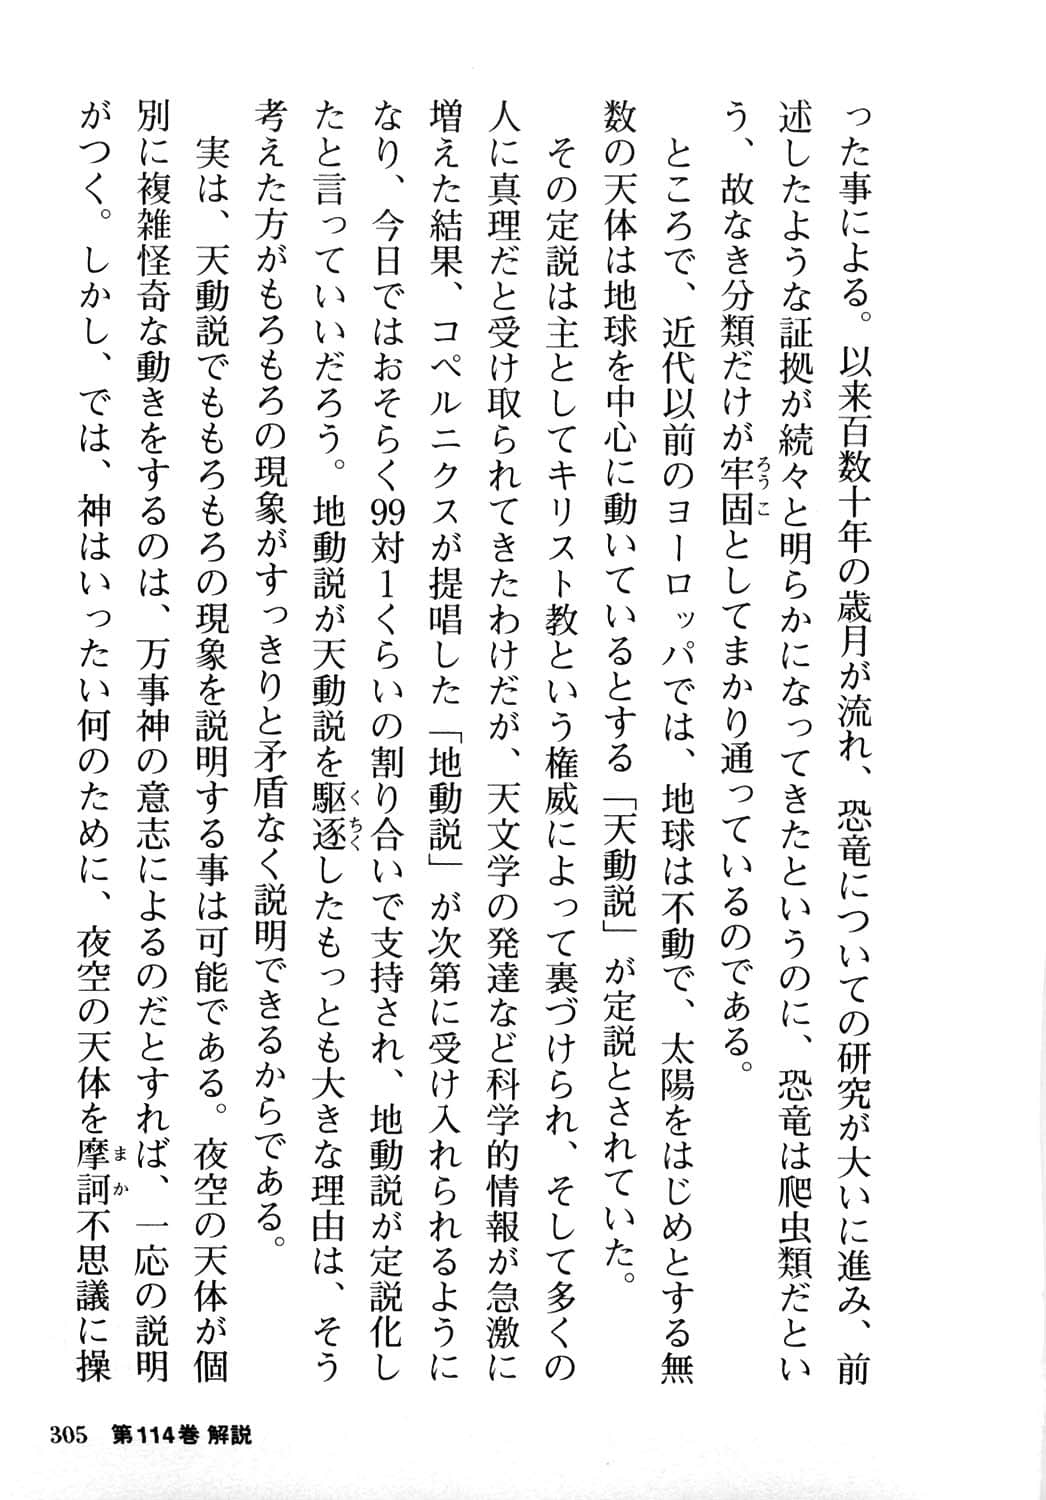 った事による。以来百数十年の歳月が流れ、恐竜についての研究が大いに進み、前
述したような証拠が続々と明らかになってきたというのに、恐竜は爬虫類だとい
う、故なき分類だけが牢固ろうことしてまかり通っているのである。
ところで、近代以前のヨーロッパでは、地球は不動で、太陽をはじめとする無
数の天体は地球を中心に動いているとする「天動説」が定説とされていた。
その定説は主としてキリスト教という権威によって裏づけられ、そして多くの
人に真理だと受け取られてきたわけだが、天文学の発達など科学的情報が急激に
増えた結果、コペルニクスが提唱した「地動説」が次第に受け入れられるように
なり、今日ではおそらく99対1くらいの割り合いで支持され、地動説が定説化し
たと言っていいだろう。地動説が天動説を駆逐くちくしたもっとも大きな理由は、そう
考えた方がもろもろの現象がすっきりと矛盾なく説明できるからである。
実は、天動説でももろもろの現象を説明する事は可能である。夜空の天体が個
別に複雑怪奇な動きをするのは、万事神の意志によるのだとすれば、一応の説明
がつく。しかし、では、神はいったい何のために、夜空の天体を摩訶まか不思議に操
305 第114巻 解説